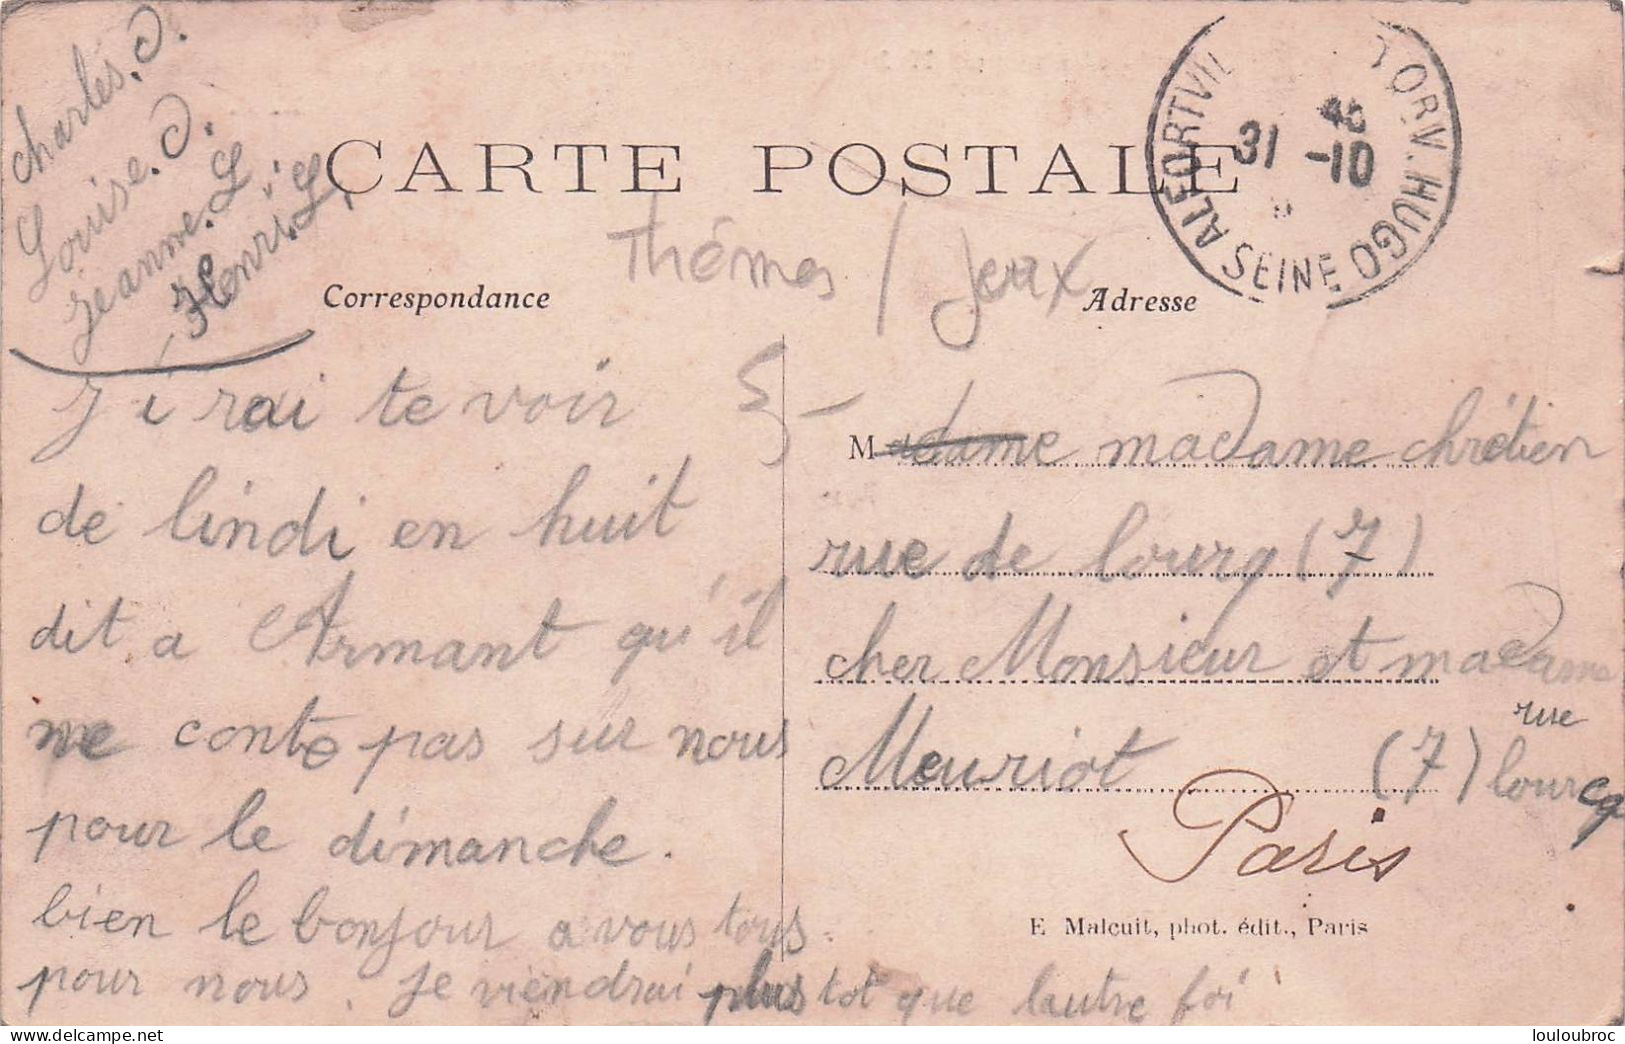 Charles. D.
Louise. D.
Jeanne. L.
Henri. L.
CARTE POSTALE
ALFORTVIL
TORV. HUGO
31 -10
SEINE
Thémes / jeux
Correspondance
Adresse
J'irai te voir
de lindi en huit
dit a Armant qu'il
ne conte pas sur nous
pour le dimanche.
bien le bonjour a vous tous.
pour nous. Je viendrai plus tot que lautre foi
5-
Madame madame chrétien
rue de lourq (7)
cher Monsieur et madame
Meuriot (7) rue
lourcq
Paris
E Malcuit, phot. édit., Paris
louloubroc